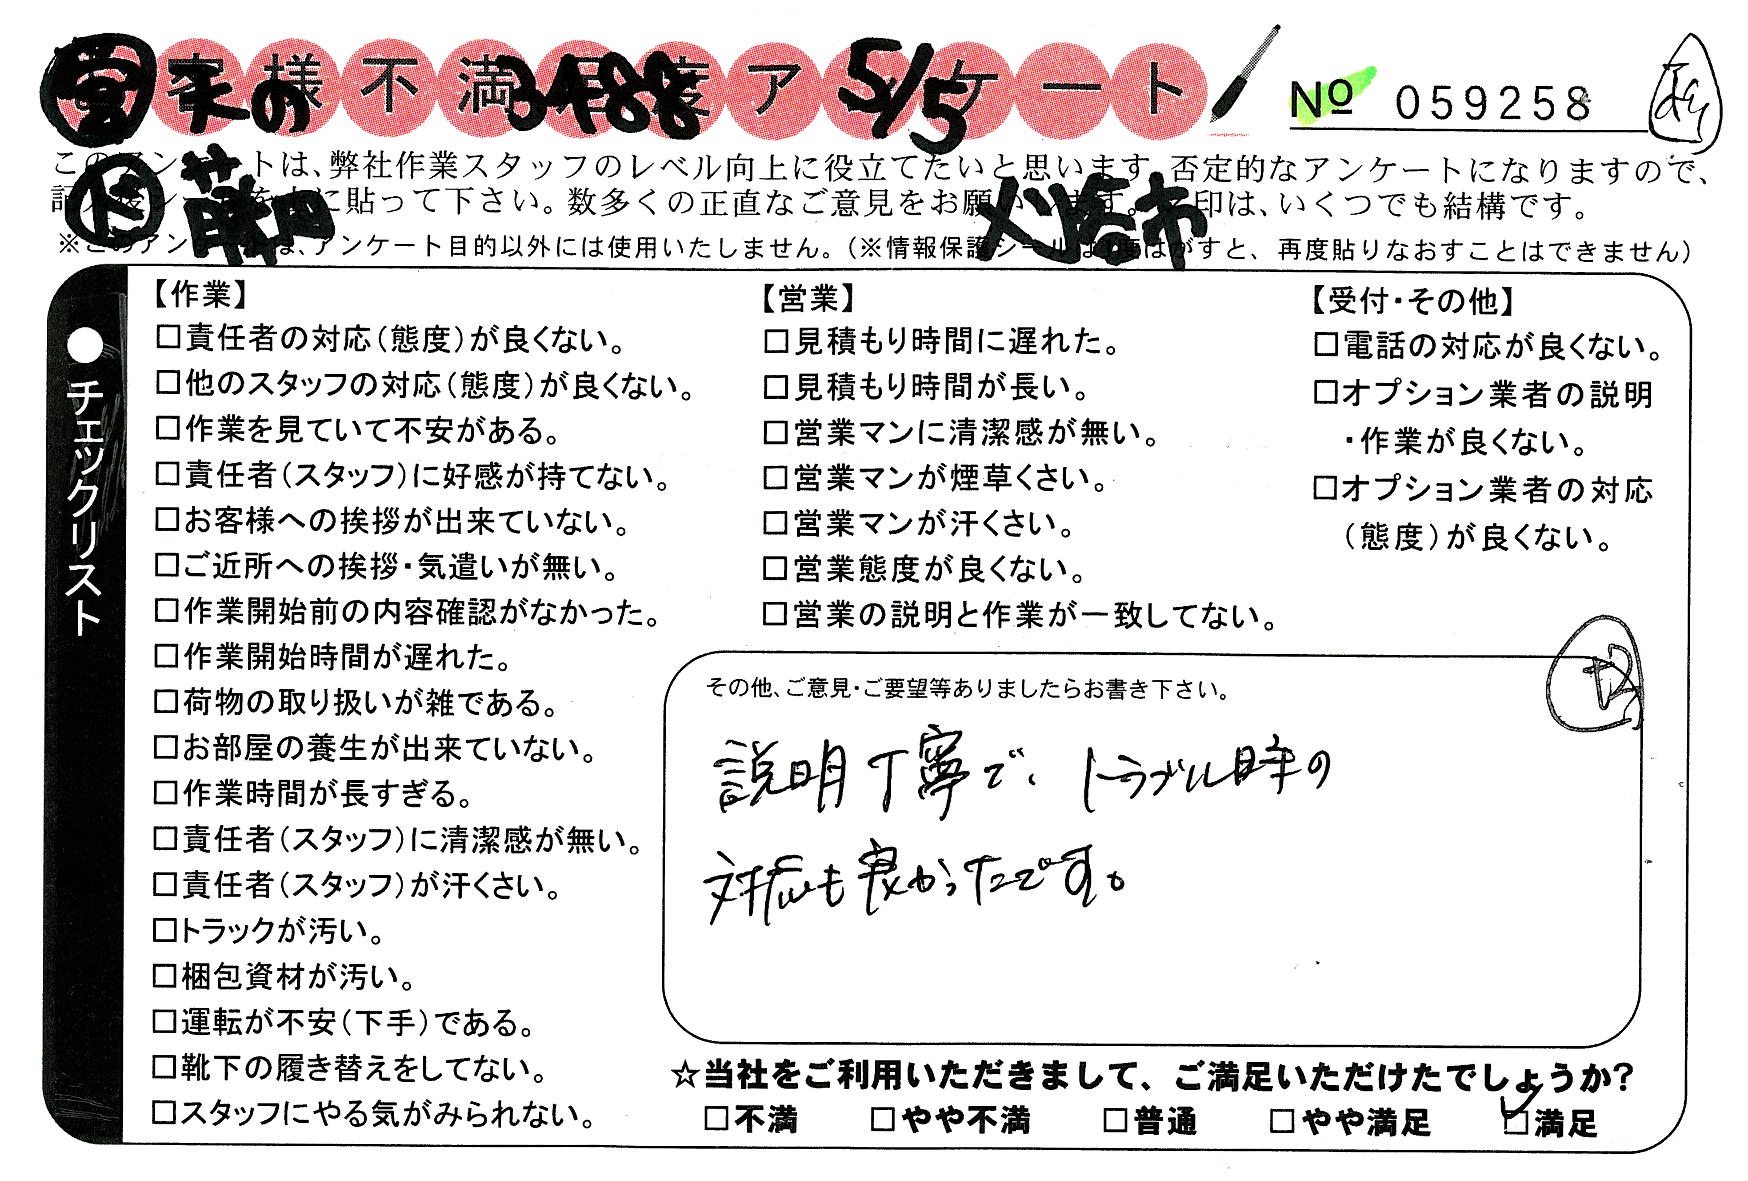 お客様不満足度アンケート
3488
5/5
No 059258
このアンケートは、弊社作業スタッフのレベル向上に役立てたいと思います。否定的なアンケートになりますので、
記入後シールを上に貼って下さい。数多くの正直なご意見をお願いします。 印は、いくつでも結構です。
※このアンケートは、アンケート目的以外には使用いたしません。(※情報保護シールは1度はがすと、再度貼りなおすことはできません)
刈谷市
●チェックリスト
【作業】
□責任者の対応(態度)が良くない。
□他のスタッフの対応(態度)が良くない。
□作業を見ていて不安がある。
□責任者(スタッフ)に好感が持てない。
□お客様への挨拶が出来ていない。
□ご近所への挨拶・気遣いが無い。
□作業開始前の内容確認がなかった。
□作業開始時間が遅れた。
□荷物の取り扱いが雑である。
□お部屋の養生が出来ていない。
□作業時間が長すぎる。
□責任者(スタッフ)に清潔感が無い。
□責任者(スタッフ)が汗くさい。
□トラックが汚い。
□梱包資材が汚い。
□運転が不安(下手)である。
□靴下の履き替えをしてない。
□スタッフにやる気がみられない。
【営業】
□見積もり時間に遅れた。
□見積もり時間が長い。
□営業マンに清潔感が無い。
□営業マンが煙草くさい。
□営業マンが汗くさい。
□営業態度が良くない。
□営業の説明と作業が一致してない。
【受付・その他】
□電話の対応が良くない。
□オプション業者の説明
・作業が良くない。
□オプション業者の対応
(態度)が良くない。
その他、ご意見・ご要望等ありましたらお書き下さい。
説明丁寧で、トラブル時の
対応も良かったです。
☆当社をご利用いただきまして、ご満足いただけたでしょうか?
□不満 □やや不満 □普通 □やや満足 ☑満足